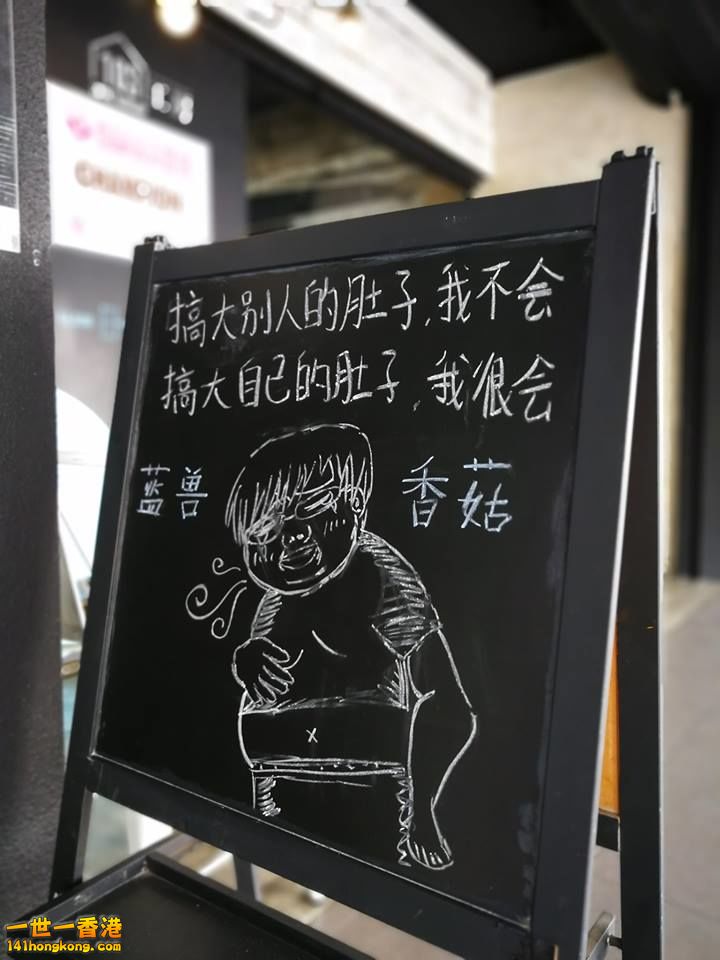 搞大别人的肚子,我不会
搞大自己的肚子,我很会
蓝兽 香菇
一世一香港
141hongkong.com